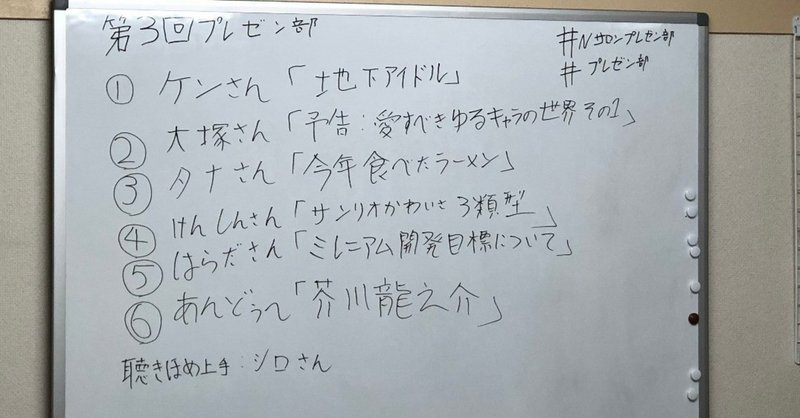 第3回プレゼン部
#Nサロンプレゼン部
#プレゼン部
① ケンさん「地下アイドル」
② 大塚さん「予告:愛すべきゆるキャラの世界その1」
③ タナさん「今年食べたラーメン」
④ けんしんさん「サンリオかわいさ3類型」
⑤ はらださん「ミレニアム開発目標について」
⑥ あんどぅー「芥川龍之介」
聴きほめ上手:シロさん